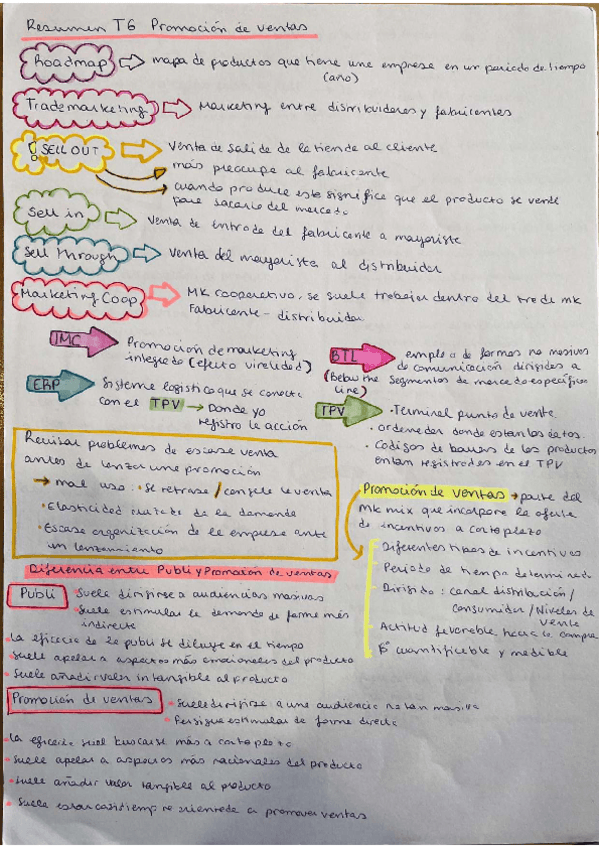 Resumen T6 Promoción de ventas
Roadmap → mapa de productos que tiene una empresa en un periodo de tiempo
(año)
Trademarketing → Marketing entre distribuidores y fabricantes
! SELL OUT → Venta de salida de la tienda al cliente
más preocupa al fabricante
cuando produce esto significa que el producto se vende
para sacarlo del mercado
Sell in → Venta de entrada del fabricante a mayorista
Sell through → Venta del mayorista al distribuidor
Marketing Coop → MK cooperativo. se suele trabajar dentro del trade mk
Fabricante - distribuidor
IMC → Promoción de marketing
integrado (efecto viralidad)
BTL (Below the line) → empleo de formas no masivas
de comunicación dirigidas a
segmentos de mercado específico
ERP → Sistema logístico que se conecta
con el TPV → Donde yo
registro la acción
TPV → · Terminal punto de venta.
· ordenador donde están los datos.
· Códigos de barras de los productos
están registrados en el TPV
Revisar problemas de escasa venta
antes de lanzar una promoción
→ mal uso: · Se retrasa / cancela la venta
· Elasticidad cruzada de la demanda
· Escasa organización de la empresa ante
un lanzamiento
Promoción de ventas → parte del
mk mix que incorpora la oferta
de incentivos a corto plazo
- Diferentes tipos de incentivos
- Periodo de tiempo determinado
- Dirigido: canal distribución /
consumidor / Niveles de
venta
- Actitud favorable hacia la compra
- Es cuantificable y medible
Diferencia entre Publi y Promoción de ventas
Publi · Suele dirigirse a audiencias masivas
· Suele estimular la demanda de forma más
indirecta
· La eficacia de la publi se diluye en el tiempo
· Suele apelar a aspectos más emocionales del producto
· Suele añadir valor intangible al producto
Promoción de ventas · Suele dirigirse a una audiencia no tan masiva
· Persigue estimular de forma directa
· La eficacia suel buscarse más a corto plazo
· Suele apelar a aspectos más racionales del producto
· Suele añadir valor tangible al producto
· Suele estar casi siempre orientada a promover ventas